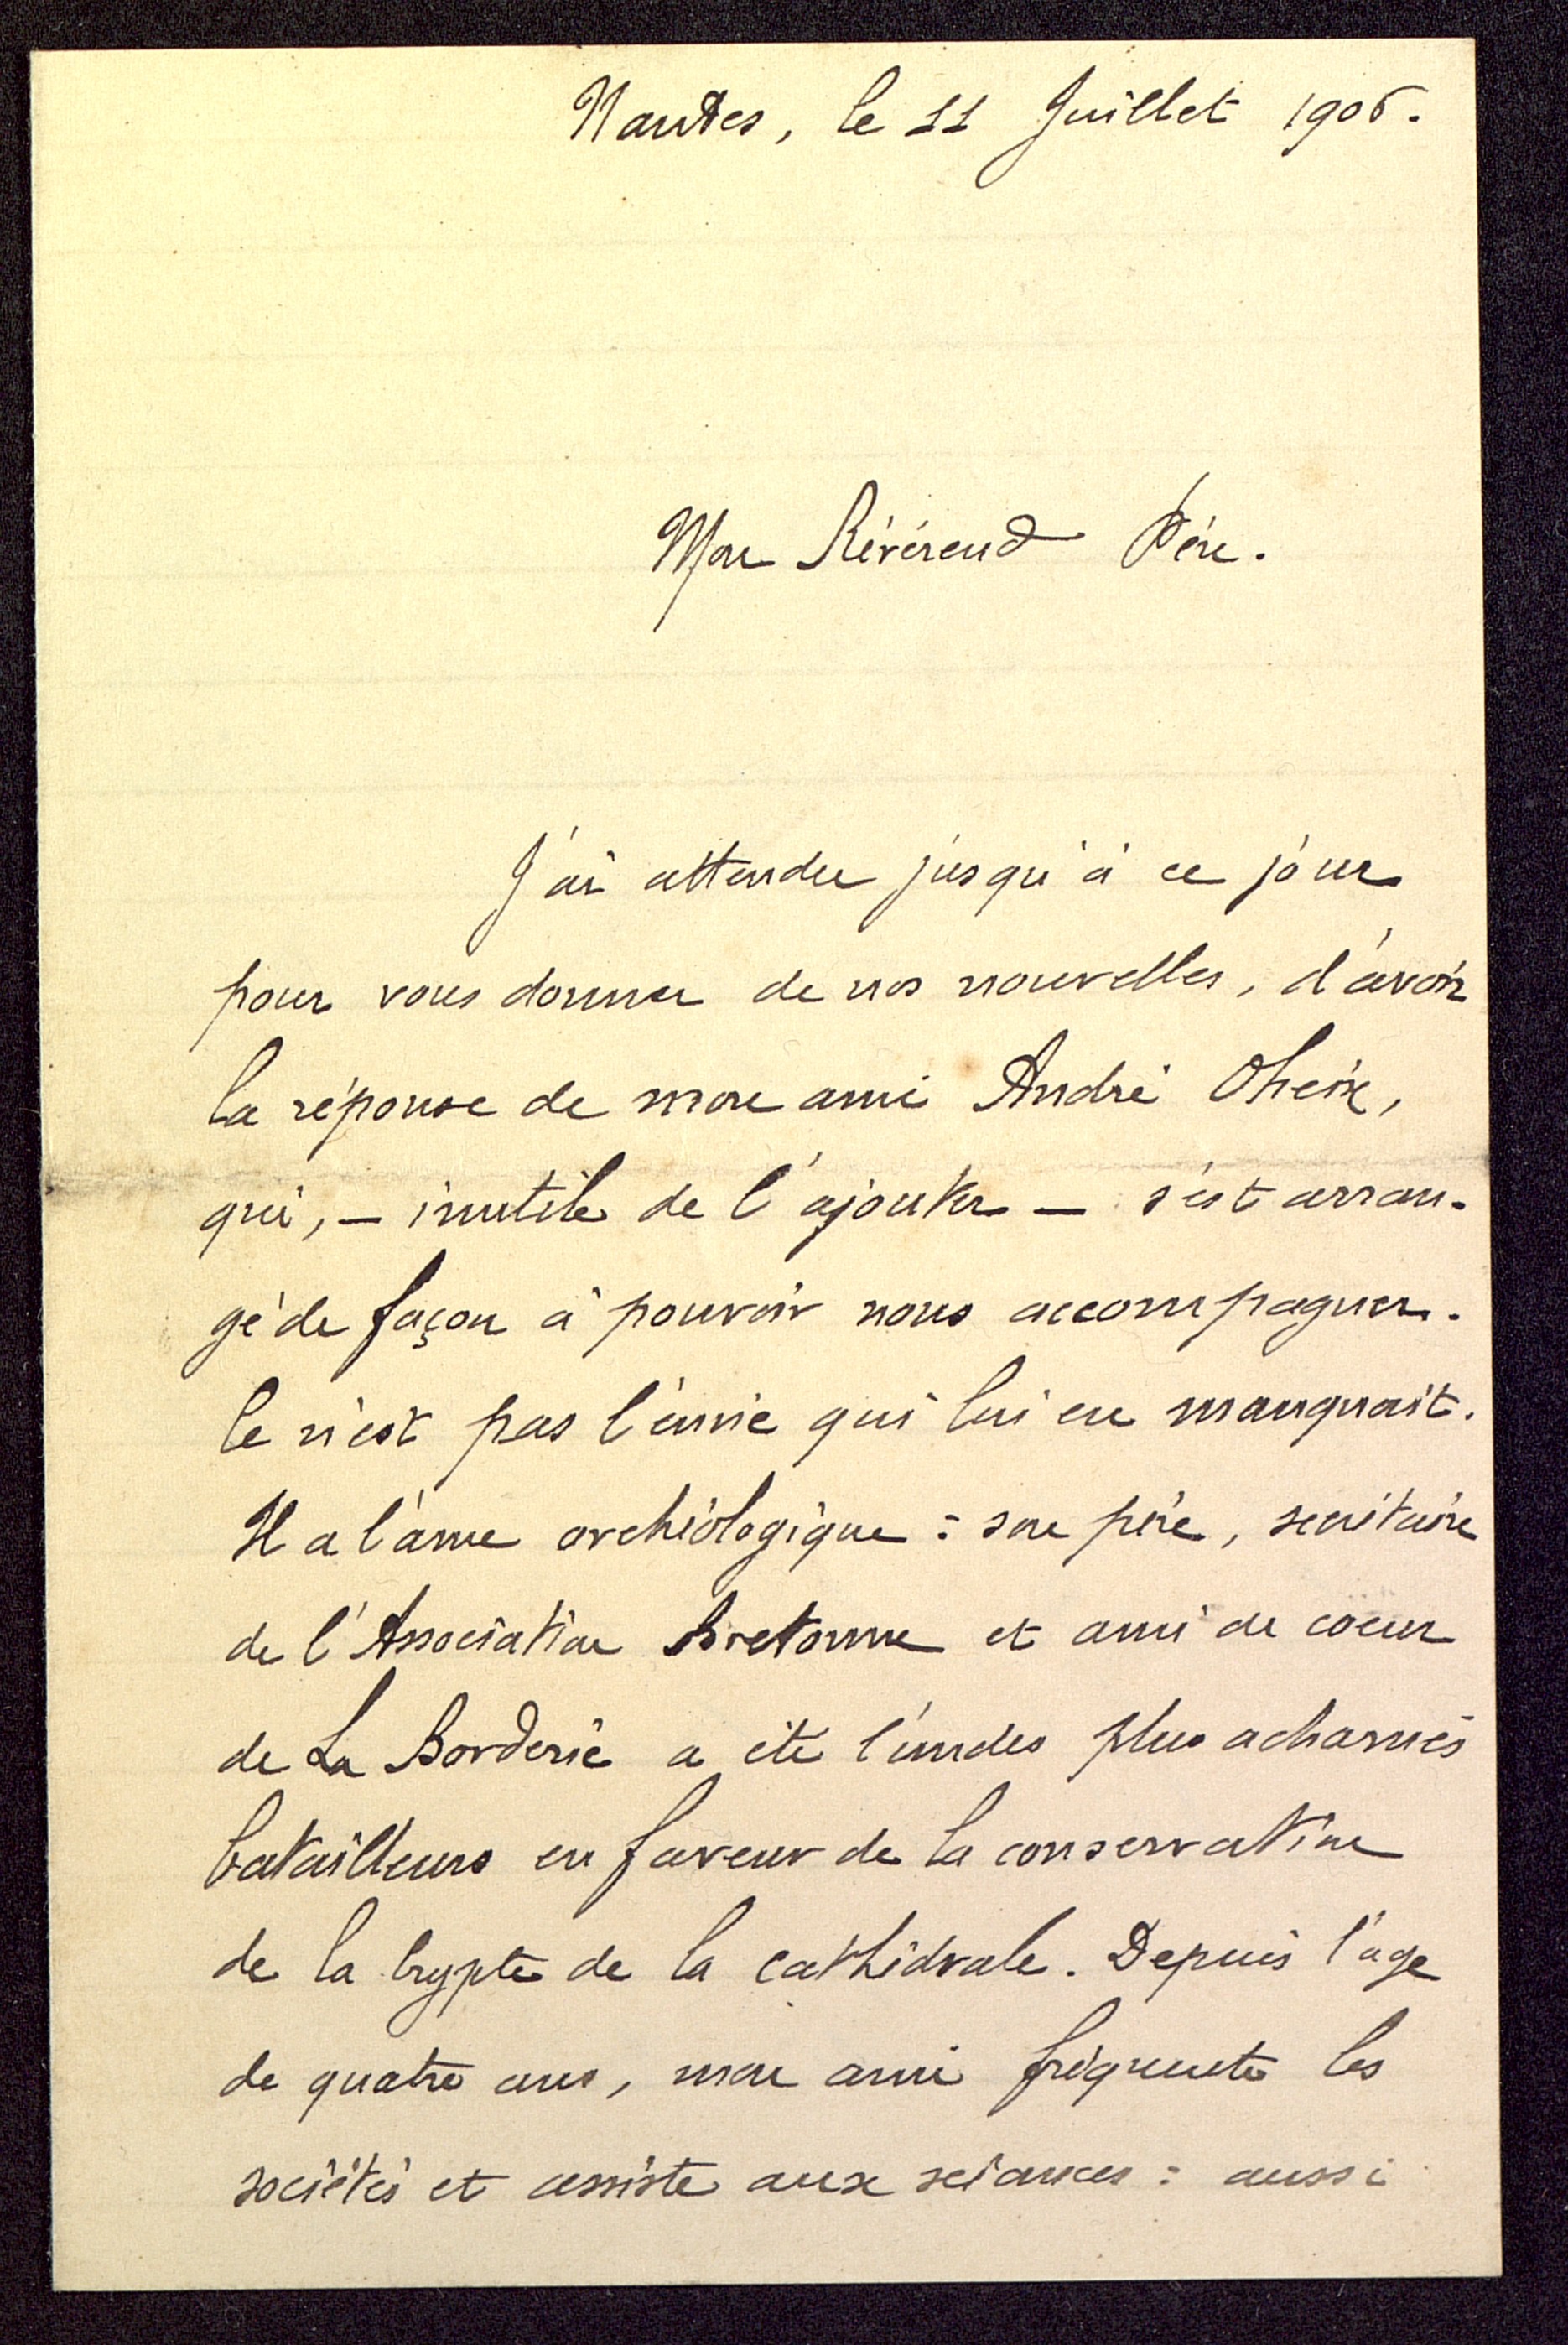 Nantes, le 11 Juillet 1906.
Mon Révérend Père.
J'ai attendu jusqu'à ce jour
pour vous donner de nos nouvelles, d'avoir
la réponse de mon ami André Oheix,
qui, – inutile de l'ajouter – s'est arran-
gé de façon à pouvoir nous accompagner.
Ce n'est pas l'envie qui lui en manquait.
Il a l'âme archéologique : son père, secrétaire
de l'Association Bretonne et ami de coeur
de La Borderie a été l'un des plus acharnés
batailleurs en faveur de la conservation
de la Crypte de la cathédrale. Depuis l'âge
de quatre ans, mon ami fréquente les
sociétés et assiste aux séances : aussi